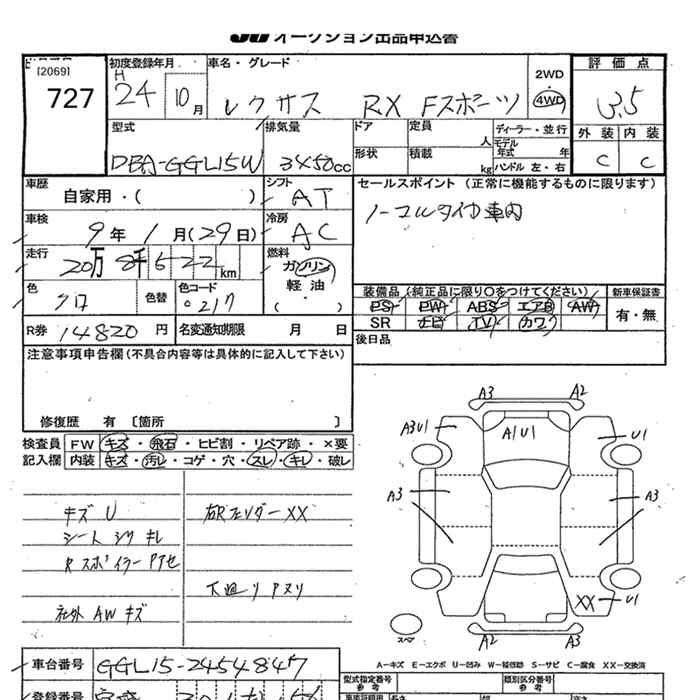 JU オークション出品申込書
[2069]
727
初度登録年月
H 24 10月
車名・グレード
レクサス RX Fスポーツ
2WD
・
4WD
評価点
3.5
外装 内装
C C
型式
DBA-GGL15W
排気量
3450cc
ドア
形状
定員
人
積載
kg
ディーラー・並行
モデル年式 年
ハンドル 左・右
車歴
自家用・( )
シフト
AT
車検
9年 1月(29日)
冷房
AC
走行
20万8千522km
燃料
ガソリン
軽油
( )
色
クロ
色替
色コード
0217
R券 14820円
名変通知期限 月 日
セールスポイント (正常に機能するものに限ります)
ノーマルタイヤ車内
装備品(純正品に限り○をつけてください)
新車保証書
PS PW ABS エアB AW
有・無
SR TV カワ
後日品
注意事項申告欄(不具合内容等は具体的に記入して下さい)
修復歴 有 〔箇所 〕
検査員 FW キズ・飛石・ヒビ割・リペア跡・×要
記入欄 内装 キズ・汚レ・コゲ・穴・スレ・キレ・破レ
キズ U
シート シワ キレ
R スポイラー
社外 AW キズ
右Rフェンダー XX
下廻り
A3 A2
A3U1 A1U1 U1
A3 A3
XX U1
スペア
A2 A3
A−キズ E−エクボ U−凹み W−補修跡 S−サビ C−腐食 XX−交換済
車台番号 GGL15-2454847
型式指定番号
参考
類別区分番号
参考
登録番号